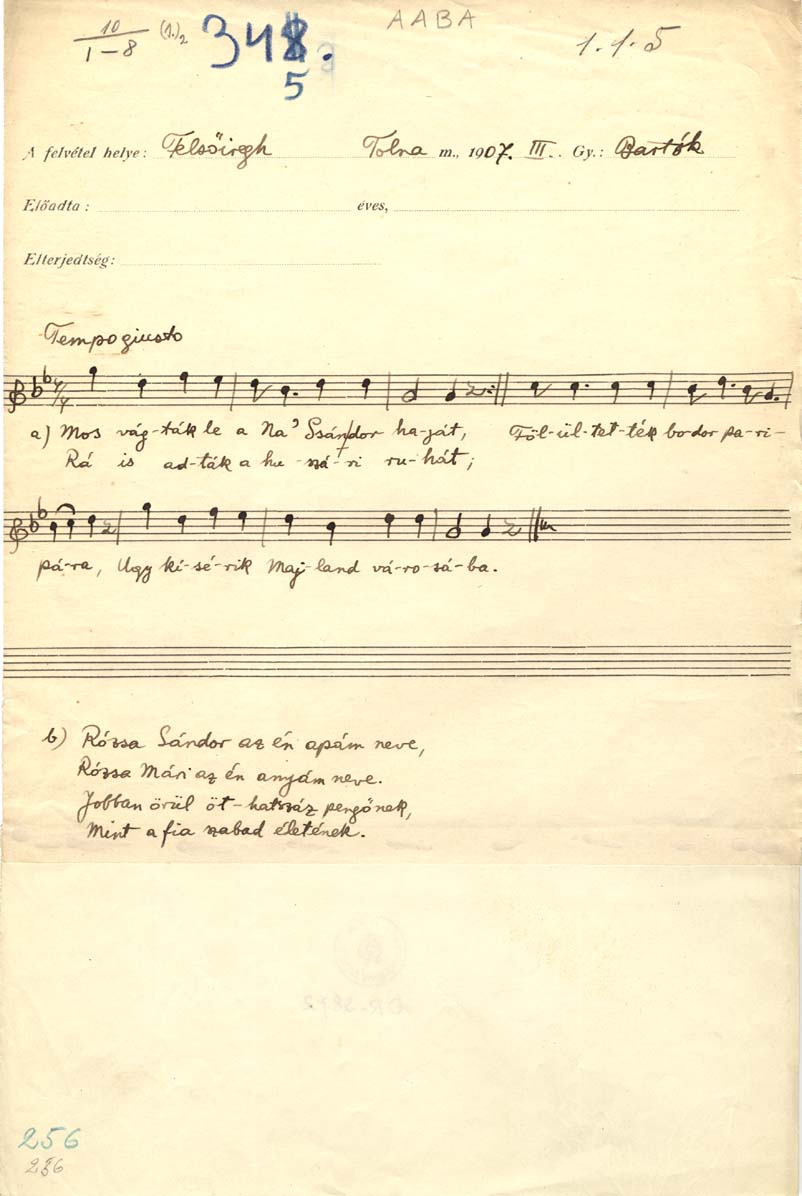 10 (1.)2 348. AABA 1.1.5
1–8 5
A felvétel helye: Felsőiregh Tolna m., 1907. III. . Gy.: Bartók
Előadta: éves,
Elterjedtség:
Tempo giusto
4/4
a) Mos vág-ták le a Na' Ssándor ha-ját, Föl-ül-tet-ték bodor pa-ri-
Rá is ad-ták a hu-szá-ri ru-hát;
pá-ra, Ugy ki-sé-rik Maj-land vá-ro-sá-ba.
b) Rózsa Sándor az én apám neve,
Rózsa Mári az én anyám neve.
Jobban örül öt-hatszáz pengőnek,
Mint a fia szabad életének.
256
236